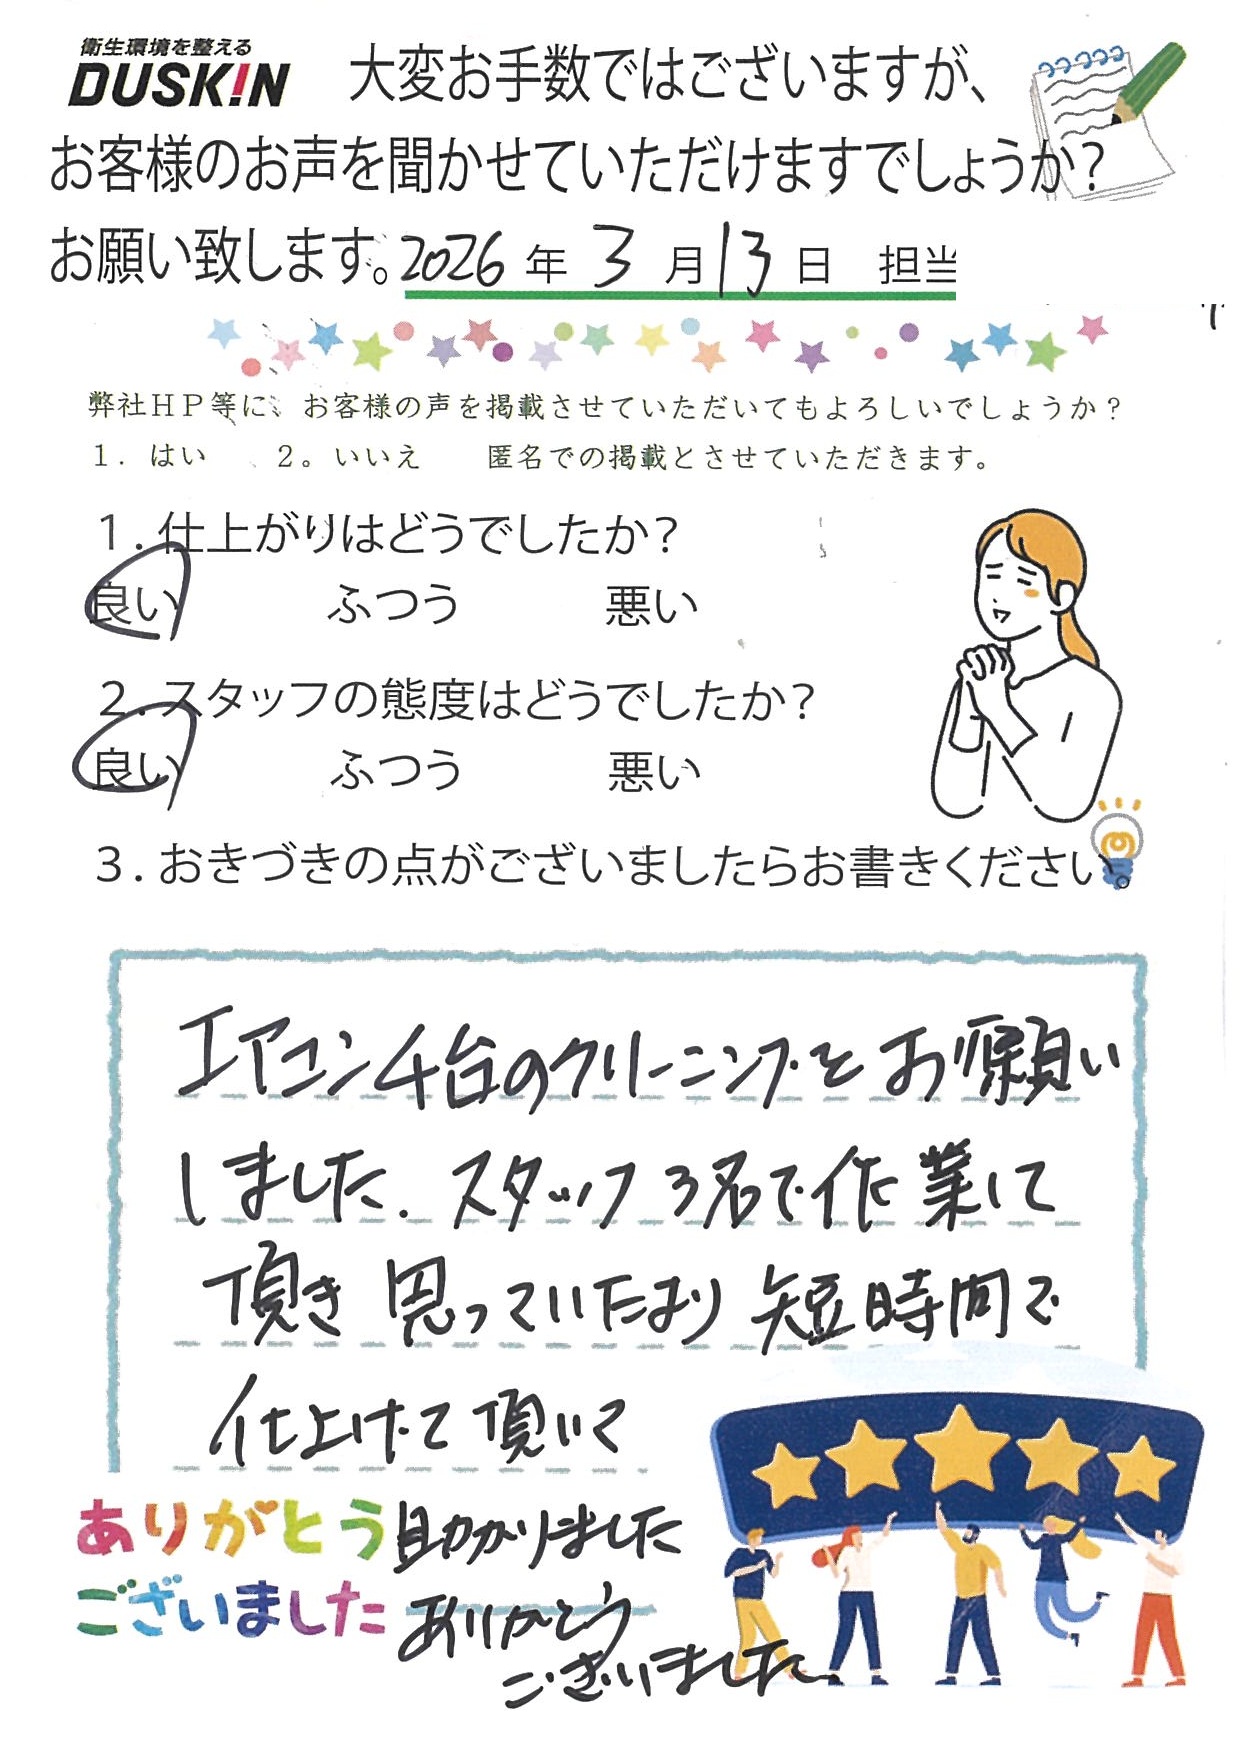 衛生環境を整える
DUSKIN
大変お手数ではございますが、
お客様のお声を聞かせていただけますでしょうか？
お願い致します。2026年3月13日 担当
弊社ＨＰ等に、お客様の声を掲載させていただいてもよろしいでしょうか？
１．はい　２。いいえ　匿名での掲載とさせていただきます。
１．仕上がりはどうでしたか？
良い　ふつう　悪い
２．スタッフの態度はどうでしたか？
良い　ふつう　悪い
３．おきづきの点がございましたらお書きください。
エアコン4台のクリーニングをお願い
しました．スタッフ3名で作業して
頂き思っていたより短時間で
仕上げて頂いて
助かりました
ありがとう
ございました
ありがとう
ございました